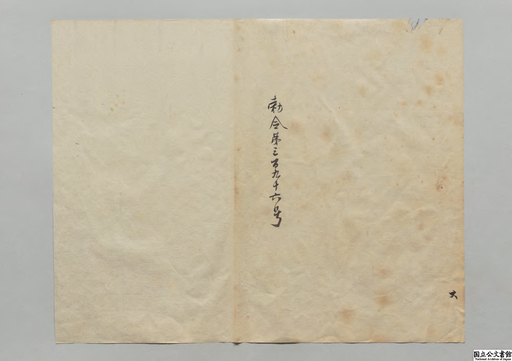 勅令第三百九十六号
大
国立公文書館
National Archives of Japan